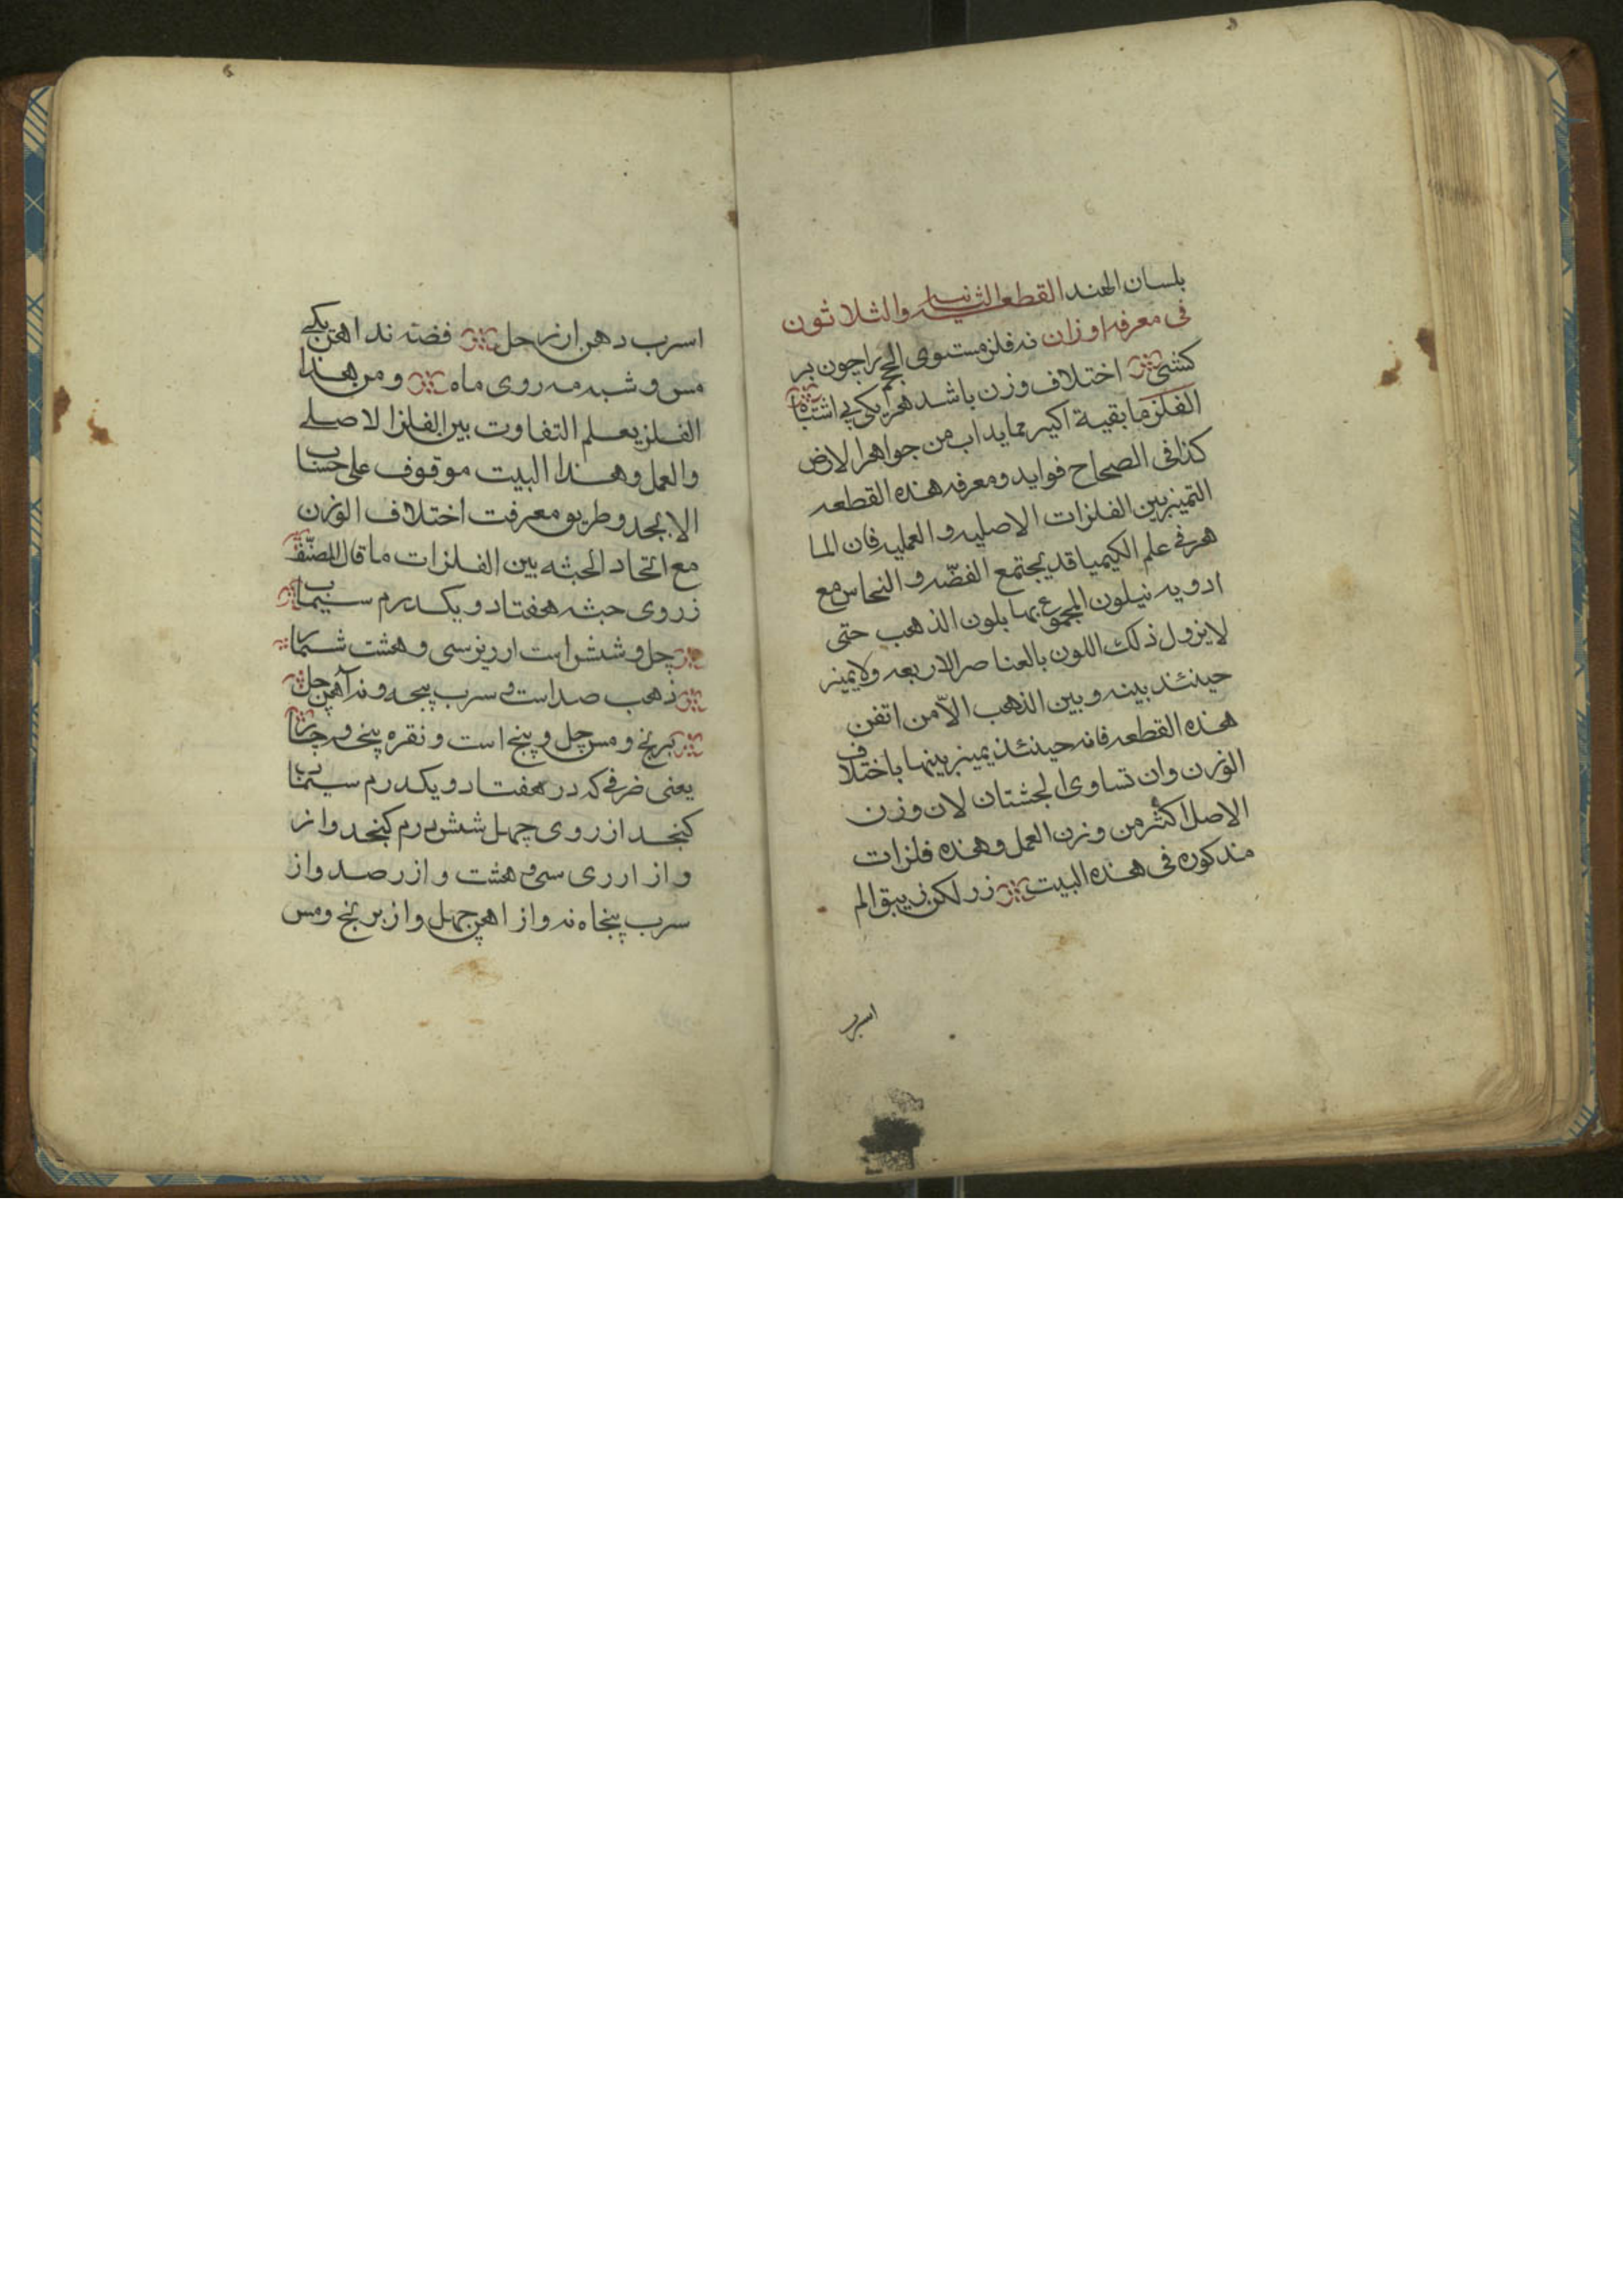 بلسان الهند القطعه الثانيه والثلاثون
فى معرفه اوزان نه فلز مستوى الحجم را چون بر
كشى اختلاف وزن باشد هر يكى بى اشتباه
الفلز ما بقية اكير مما يداب من جواهر الارض
كذا فى الصحاح فوايد ومعرفه هذه القطعه
التميز بين الفلزات الاصليه و العمليه فان الما
هر فى علم الكيميا قد يجتمع الفضّه و النحاس مع
ادويه نيلون المجموع بها بلون الذهب حتى
لايزول ذلك اللون بالعناصر الاربعه ولا يميز
حينئذ بينه و بين الذهب الّا من اتقن
هذه القطعه فانه حينئذ يميز بينها باختلاف
الوزن وان تساوى الجثتان لان وزن
الاصل اكثر من وزن العمل و هذه فلزات
مذكوره فى هذه البيت زر لكن زيبق الم
اسرب
اسرب دهن ارز حل فضه ند اهن يكى
مس و شبه مه روى ماه ومن هذا
الفلز يعلم التفاوت بين الفلز الاصلى
والعمل وهذا البيت موقوف على حساب
الابجد وطريق معرفت اختلاف الوزن
مع اتحاد الجثه بين الفلزات ما قال المصنّف
ز روى جثه هفتاد و يكدرم سيماب
چل و شش است ارزيز سى و هشت شمار
ذهب صد است و سرب پنجه و نه آهن چل
برنج و مس چل و پنج است و نقره پنجه و چار
يعنى ضرفى كه در هفتاد و يكدرم سيماب
كنجد از روى چهل شش درم كنجد و از
و از ارزى سى و هشت و از زر صد و از
سرب پنجاه نه و از اهن چهل و از برنج و مس